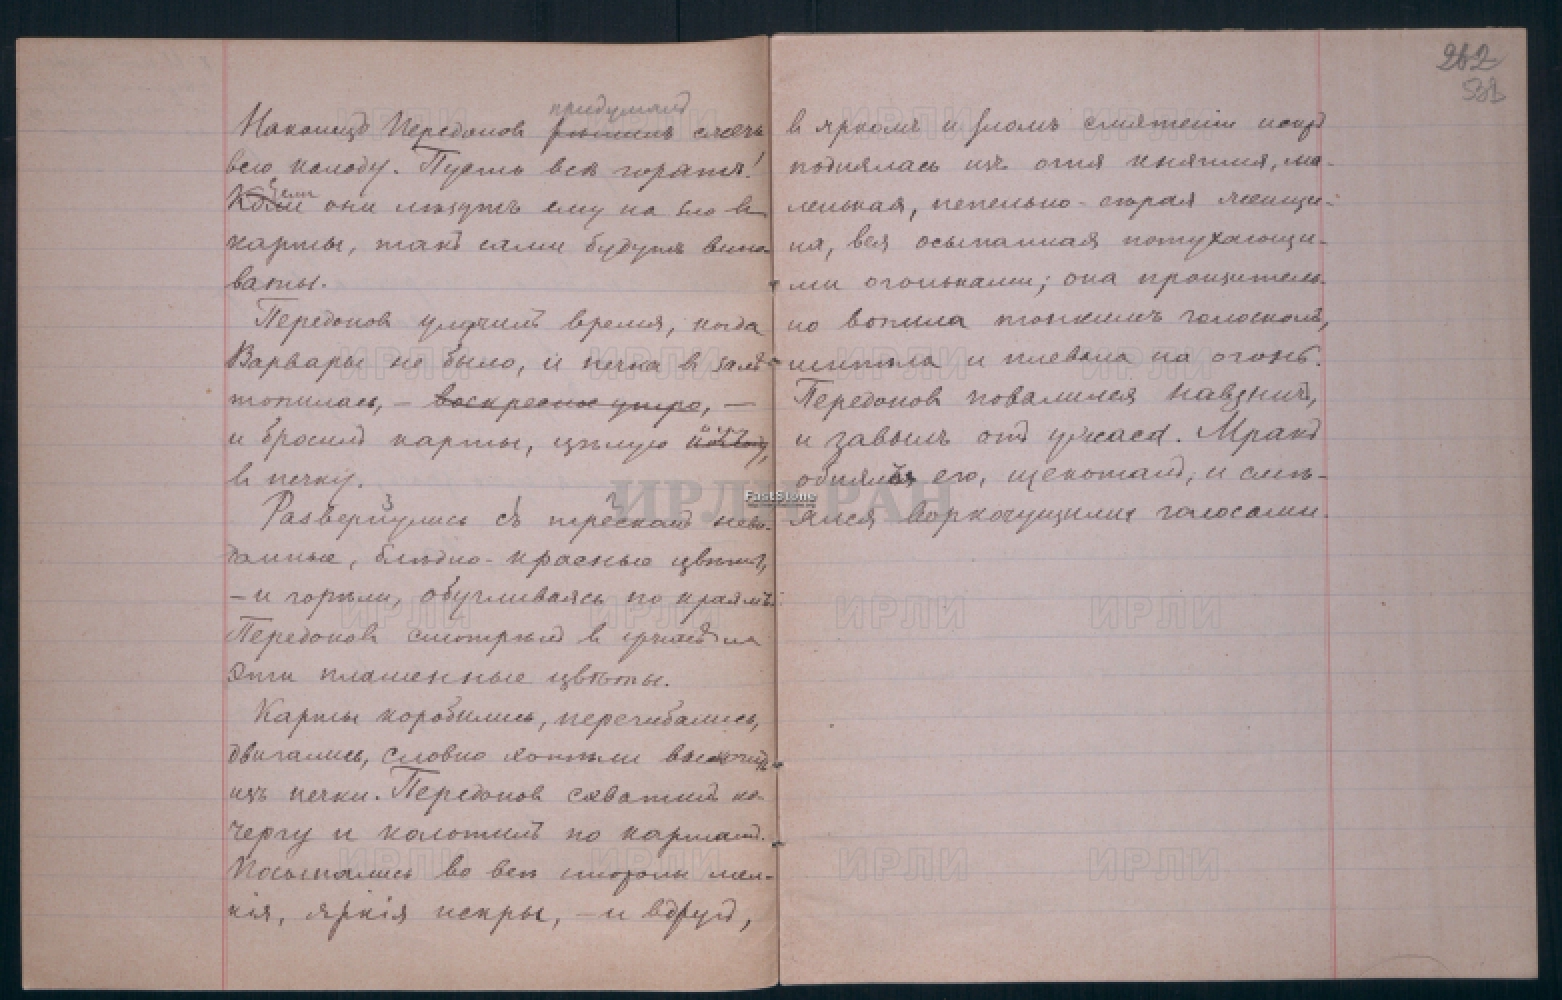 придумалъ
Наконецъ Передоновъ рѣшилъ сжечь
всю колоду. Пусть всѣ горятъ!
Если
Коли они лѣзутъ ему на зло въ
карты, такъ сами будутъ вино-
ваты.
Передоновъ улучилъ время, когда
Варвары не было, и печка въ залѣ
топилась, – воскресное утро, –
и бросилъ карты, цѣлую колоду,
въ печку.
Развернулись съ трескомъ неви-
данные, блѣдно-красные цвѣты,
– и горѣли, обугливаясь по краямъ.
Передоновъ смотрѣлъ въ ужасѣ на
эти пламенные цвѣты.
Карты коробились, перегибались,
двигались, словно хотѣли выскочить
изъ печки. Передоновъ схватилъ ко-
чергу и колотилъ по картамъ.
Посыпались во всѣ стороны мел-
кія, яркія искры, – и вдругъ,
262
въ яркомъ и зломъ смятеніи искръ
поднялась изъ огня княгиня, ма-
ленькая, пепельно-сѣрая женщи-
на, вся осыпанная потухающи-
ми огоньками; она пронзитель-
но вопила тонкимъ голоскомъ,
шипѣла и плевала на огонь.
Передоновъ повалился навзничь,
и завылъ отъ ужаса. Мракъ
обнялъ его, щекоталъ, и смѣ-
ялся воркочущими голосами.
ИРЛИ РАН
FastStone
ИРЛИ